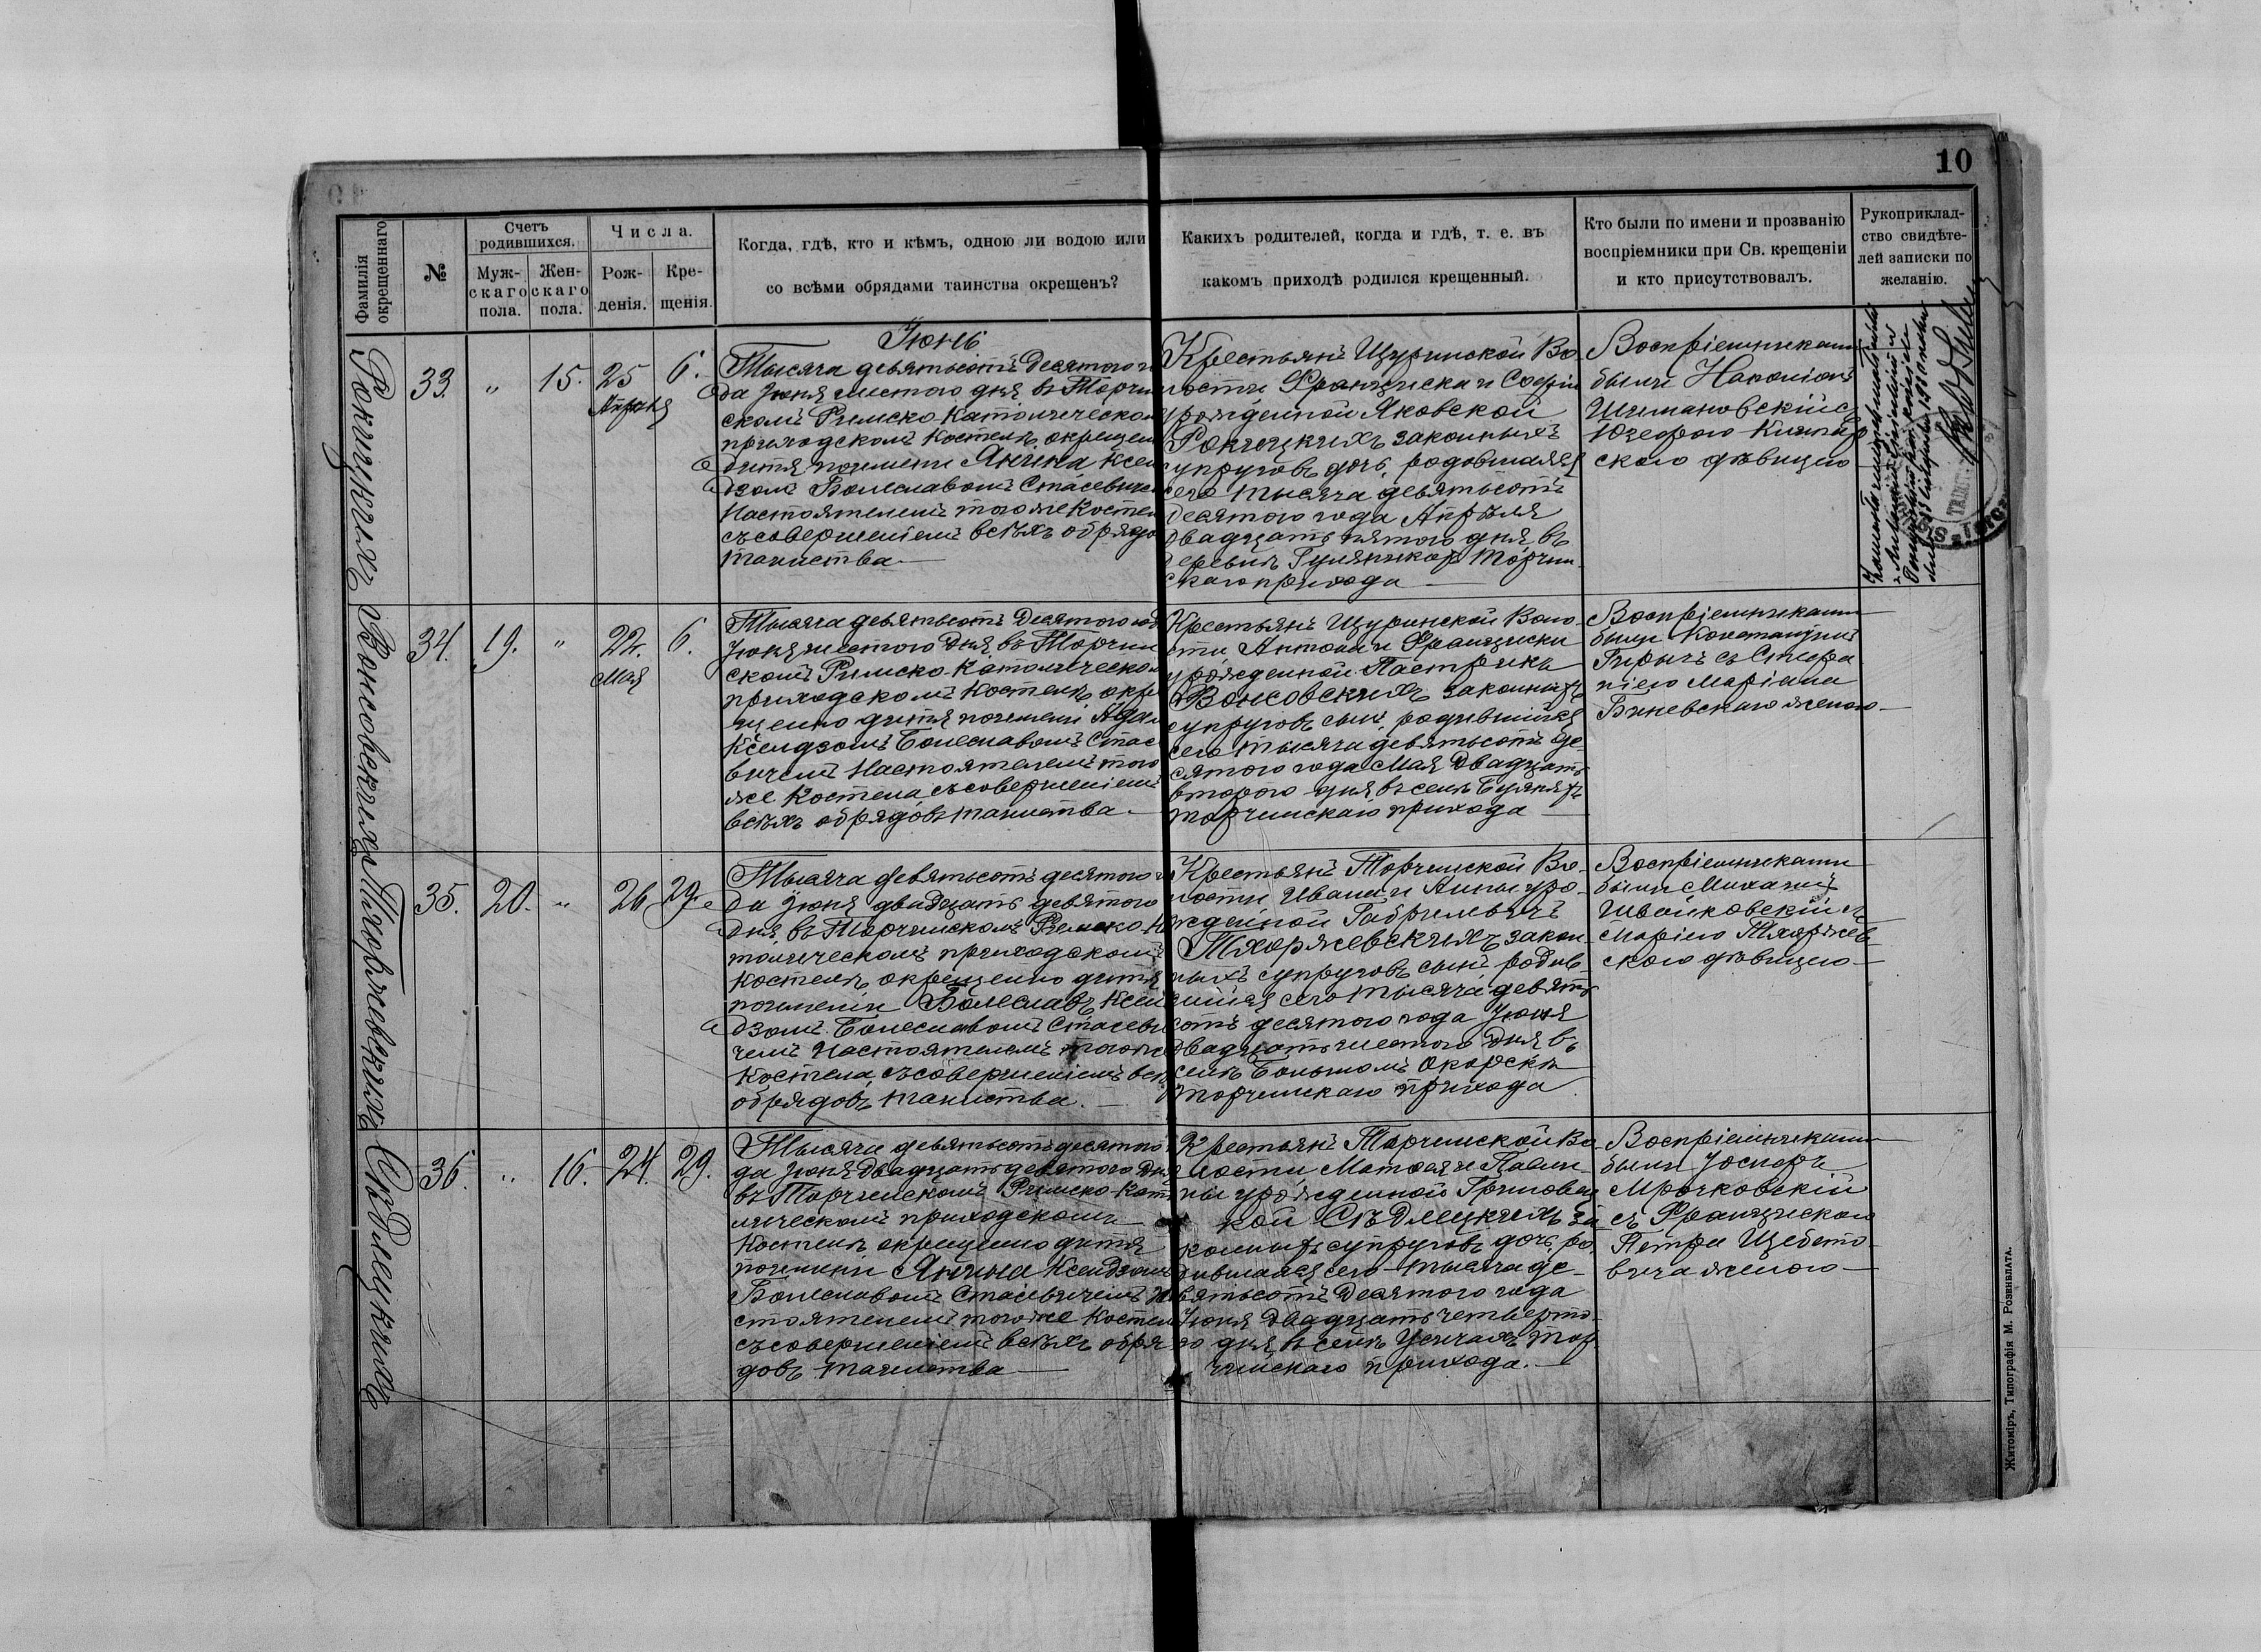 10
Фамилія окрещеннаго
№
Счетъ родившихся.
Муж-скаго пола.
Жен-скаго пола.
Числа.
Рож-денія.
Кре-щенія.
Когда, гдѣ, кто и кѣмъ, одною ли водою или
со всѣми обрядами таинства окрещенъ?
Какихъ родителей, когда и гдѣ, т. е. въ
какомъ приходѣ родился крещенный.
Кто были по имени и прозванію
воспріемники при Св. крещеніи
и кто присутствовалъ.
Рукоприклад-
ство свидѣте-
лей записки по
желанію.
33. " 15. 25 Апрѣля 6.
Іюнь
Тысяча девятьсотъ Десятого го
да Іюня шестого дня въ Торчин
скомъ Римско-Католическомъ
приходскомъ Костелѣ окрещено
дитя поимени Янина Ксен
дзомъ Болеславомъ Стасевичемъ
Настоятелемъ того же Костела
съ совершеніемъ всѣхъ обрядо
таинства
Крестьянъ Щуринской Во
лости Франциска и Софіи
урожденной Яковской
Рокицкихъ законныхъ
супруговъ дочь, родовшаяся
сего тысяча девятьсотъ
десятого года Апрѣля
двадцать пятого дня въ
деревнѣ Торчин
скаго прихода
Воспріемниками
были Наполіонъ
Шимановскій съ
Юзефою
ского дѣвицею
34. 19. " 22. Мая 6.
Тысяча девятьсотъ Десятого год
Іюня шестого Дня въ Торчин
скомъ Римско-Католическом
приходскомъ Костелѣ окре
щено дитя поимени Адам
Ксендзомъ Болеславомъ Стасе
вичемъ Настоятелемъ того
же Костела съ совершеніемъ
всѣхъ обрядовъ таинства
Крестьянъ Щуринской Воло
сти Антона и Франциски
урожденной Пастрикъ
Вонсовскихъ законныхъ
супруговъ сынъ родившійся
сего тысяча девятьсотъ де
сятого года Мая Двадцать
второго дня въ селѣ Буяняхъ
Торчинскаго прихода
Воспріемниками
были Константинъ
съ Стефа
ніею Маріана
Биневскаго женою
35. 20. " 26 29.
Тысяча девятьсотъ десятого го
да Іюня двадцать девятого
дня, въ Торчинскомъ Римско-Ка
толическомъ приходскомъ
Костелѣ окрещено дитя
поимени Болеславъ Ксен
дзомъ Болеславомъ Стасеви
чемъ Настоятелемъ того же
Костела, съ совершеніемъ всѣх
обрядовъ таинства.
Крестьянъ Торчинской Во
лости Ивана и Анны уро
жденной Габрилевичъ
Тхоржевскихъ закон
ныхъ супруговъ сынъ родив
шійся сего тысяча девять
сотъ десятого года Іюня
двадцать шестого дня въ
селѣ Большомъ Окорскѣ
Торчинскаго прихода
Воспріемниками
были Михаилъ
Швайковскій съ
Маріею Тхоржев
ского дѣвицею
36. " 16. 24. 29.
Тысяча девятьсотъ десятого
да Іюня Двадцать девятого дня
въ Торчинскомъ Римско-Като
лическомъ приходскомъ
Костелѣ окрещено дитя
поимени Янина Ксендзомъ
Болеславомъ Стасевичемъ На
стоятелемъ того же Костела
съ совершеніемъ всѣхъ обря
довъ таинства
Крестьянъ Торчинской Во
лости Матвея и Павли
ны урожденной Гриновец
кой Сѣдлецкихъ за
конныхъ супруговъ дочь, ро
дившаяся сего тысяча де
вятьсотъ Десятого года
Іюня двадцать четверто
го дня въ селѣ Усичахъ Тор
чинскаго прихода.
Воспріемниками
были Іосифъ
Мрочковскій
съ Францискою
Петра Щебето
вича женою
Рокицкихъ
Вонсовскихъ
Тхоржевскихъ
Сѣдлецкихъ
Житоміръ, Типографія М. Розенблата.